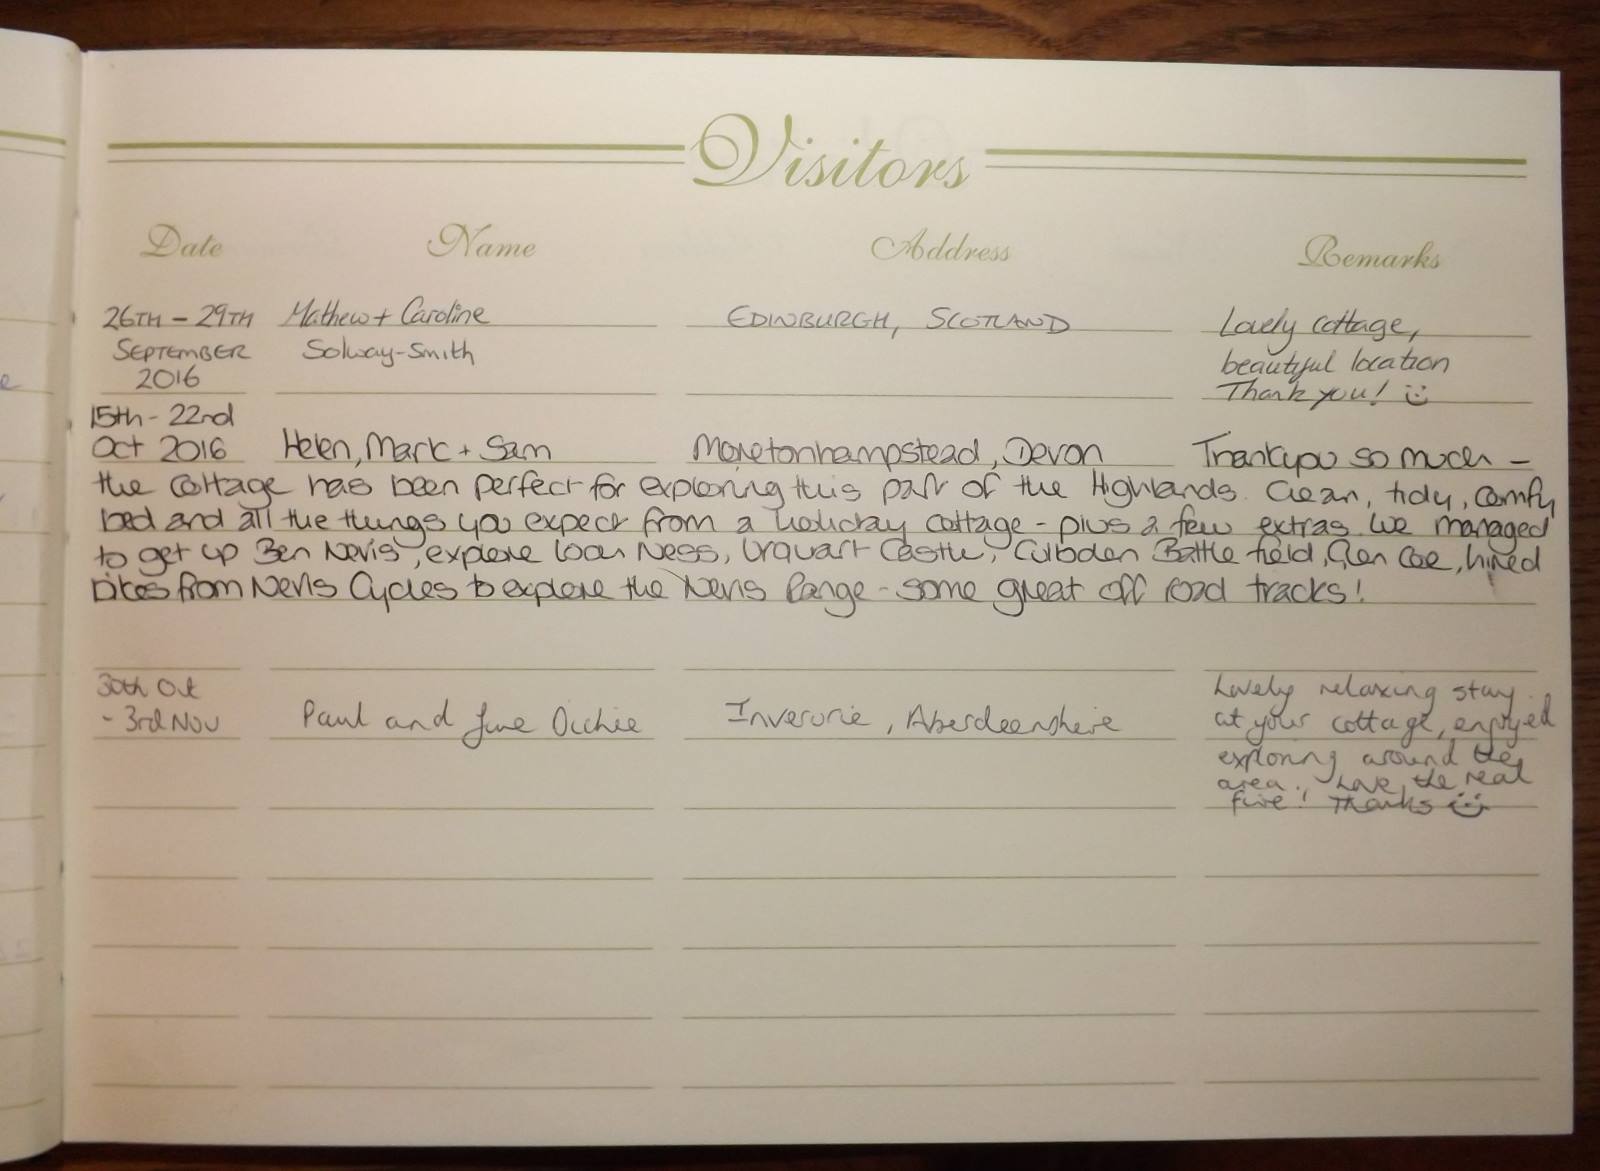 Visitors
Date Name Address Remarks
26TH - 29TH Mathew + Caroline EDINBURGH, SCOTLAND Lovely cottage,
SEPTEMBER Solway-Smith beautiful location
2016 Thank you! :)
15th - 22nd
Oct 2016 Helen, Mark + Sam Moretonhampstead, Devon Thankyou so much -
the cottage has been perfect for exploring this part of the Highlands. Clean, tidy, comfy
bed and all the things you expect from a holiday cottage - plus a few extras. We managed
to get up Ben Nevis, explore Loch Ness, Urquart Castle, Culboden Battle field, Glen Coe, hired
bikes from Nevis Cycles to explore the Nevis Range - some great off road tracks!
30th Oct Lovely relaxing stay
- 3rd Nov Paul and June Inverurie, Aberdeenshire at your cottage, enjoyed
exploring around the
area. Love the real
fire! Thanks :)